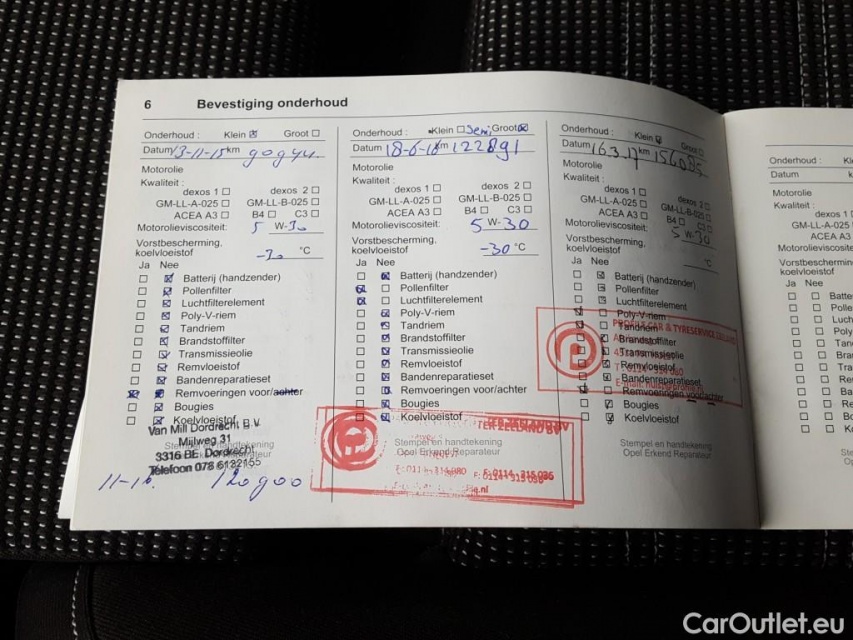 6 Bevestiging onderhoud
Onderhoud : Klein Groot
Datum 13-11-15 km 90944
Motorolie
Kwaliteit :
dexos 1 dexos 2
GM-LL-A-025 GM-LL-B-025
ACEA A3 B4 C3
Motorolieviscositeit: 5 W-30
Vorstbescherming,
koelvloeistof -30 °C
Ja Nee
Batterij (handzender)
Pollenfilter
Luchtfilterelement
Poly-V-riem
Tandriem
Brandstoffilter
Transmissieolie
Remvloeistof
Bandenreparatieset
Remvoeringen voor/achter
Bougies
Koelvloeistof
Van Mill Dordrecht B.V.
Mijlweg 31
3316 BE Dordrecht
Telefoon 078 6132155
Stempel en handtekening
120900
Onderhoud : Klein Semi Groot
Datum 18-6-16 km 122891
Motorolie
Kwaliteit :
dexos 1 dexos 2
GM-LL-A-025 GM-LL-B-025
ACEA A3 B4 C3
Motorolieviscositeit: 5 W-30
Vorstbescherming,
koelvloeistof -30 °C
Ja Nee
Batterij (handzender)
Pollenfilter
Luchtfilterelement
Poly-V-riem
Tandriem
Brandstoffilter
Transmissieolie
Remvloeistof
Bandenreparatieset
Remvoeringen voor/achter
Bougies
Koelvloeistof
Stempel en handtekening
Opel Erkend Reparateur
F: 0114 - 315 036
Onderhoud : Klein Groot
Datum 16.3.17 km 154085
Motorolie
Kwaliteit :
dexos 1 dexos 2
GM-LL-A-025 GM-LL-B-025
ACEA A3 B4 C3
Motorolieviscositeit: 5 W-30
Vorstbescherming,
koelvloeistof °C
Ja Nee
Batterij (handzender)
Pollenfilter
Luchtfilterelement
Poly-V-riem
Tandriem
Brandstoffilter
Transmissieolie
Remvloeistof
Bandenreparatieset
Remvoeringen voor/achter
Bougies
Koelvloeistof
PROFILE CAR & TYRESERVICE
Stempel en handtekening
Opel Erkend Reparateur
Onderhoud :
Datum
Motorolie
Kwaliteit :
dexos 1
GM-LL-A-025
ACEA A3
Ja Nee
CarOutlet.eu